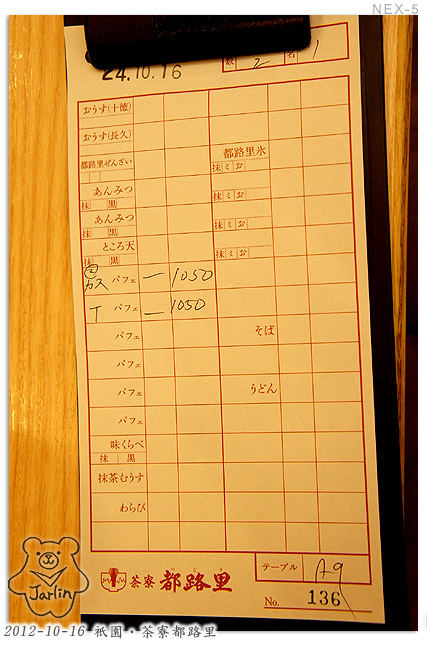 NEX-5
24.10.16
数 2 名 1
おうす(十徳)
おうす(長久)
都路里ぜんざい
都路里氷
抹 ミ お
あんみつ
抹 黒
抹 ミ お
あんみつ
抹 黒
抹 ミ お
ところ天
抹 黒
抹 ミ お
カス パフェ 一 1050
T パフェ 一 1050
パフェ
そば
パフェ
パフェ
うどん
パフェ
味くらべ
抹 黒
抹茶むうす
わらび
テーブル A9
茶寮 都路里
No. 136
Jarlin
2012-10-16 祇園・茶寮都路里